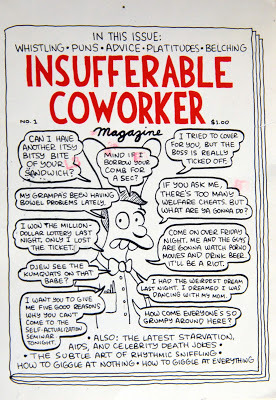 IN THIS ISSUE:
WHISTLING • PUNS • ADVICE • PLATITUDES • BELCHING
INSUFFERABLE
COWORKER
NO. 1
Magazine
$1.00
CAN I HAVE
ANOTHER ITSY
BITSY BITE
OF YOUR
SANDWICH?
MIND IF I
BORROW YOUR
COMB FOR
A SEC?
I TRIED TO COVER
FOR YOU, BUT THE
BOSS IS REALLY
TICKED OFF.
MY GRAMPA'S BEEN HAVING
BOWEL PROBLEMS LATELY.
IF YOU ASK ME,
THERE'S TOO MANY
WELFARE CHEATS. BUT
WHAT ARE YA GONNA DO?
I WON THE MILLION-
DOLLAR LOTTERY LAST
NIGHT, ONLY I LOST
THE TICKET.
COME ON OVER FRIDAY
NIGHT. ME AND THE GUYS
ARE GONNA WATCH PORNO
MOVIES AND DRINK BEER.
IT'LL BE A RIOT.
DJEW SEE THE
KUMQUATS ON THAT
BABE?
I HAD THE WEIRDEST DREAM
LAST NIGHT. I DREAMED I WAS
DANCING WITH MY MOM.
I WANT YOU TO GIVE
ME FIVE GOOD REASONS
WHY YOU CAN'T
COME TO THE
SELF-ACTUALIZATION
SEMINAR
TONIGHT.
HOW COME EVERYONE'S SO
GRUMPY AROUND HERE?
• ALSO: THE LATEST STARVATION,
AIDS, AND CELEBRITY DEATH JOKES •
• THE SUBTLE ART OF RHYTHMIC SNIFFLING •
HOW TO GIGGLE AT NOTHING • HOW TO GIGGLE AT EVERYTHING